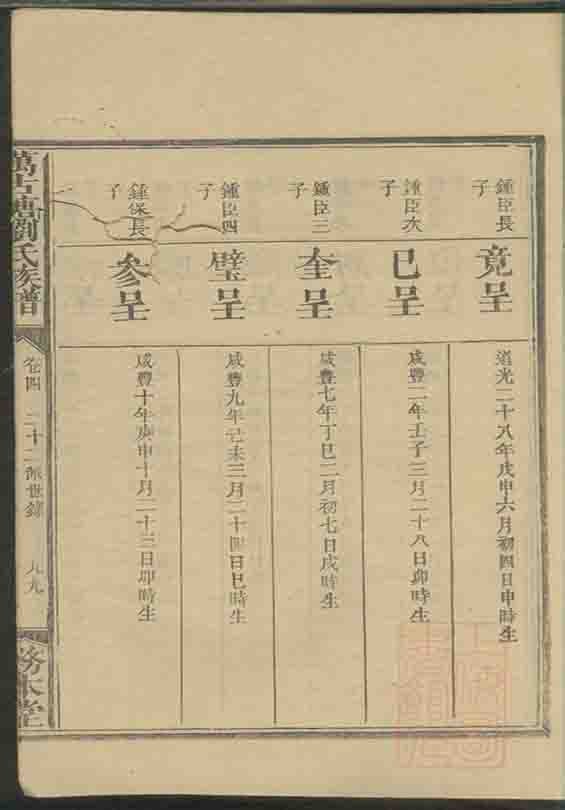 鍾臣長子
竟呈
道光二十八年戊申六月初四日申時生
鍾臣次子
巳呈
咸豐二年壬子三月二十八日卯時生
鍾臣三子
奎呈
咸豐七年丁巳二月初七日戌時生
鍾臣四子
璧呈
咸豐九年己未三月二十四日巳時生
鍾保長子
參呈
咸豐十年庚申十月二十三日卯時生
萬古塘劉氏族譜
卷四 二十二派世錄 九九
務本堂